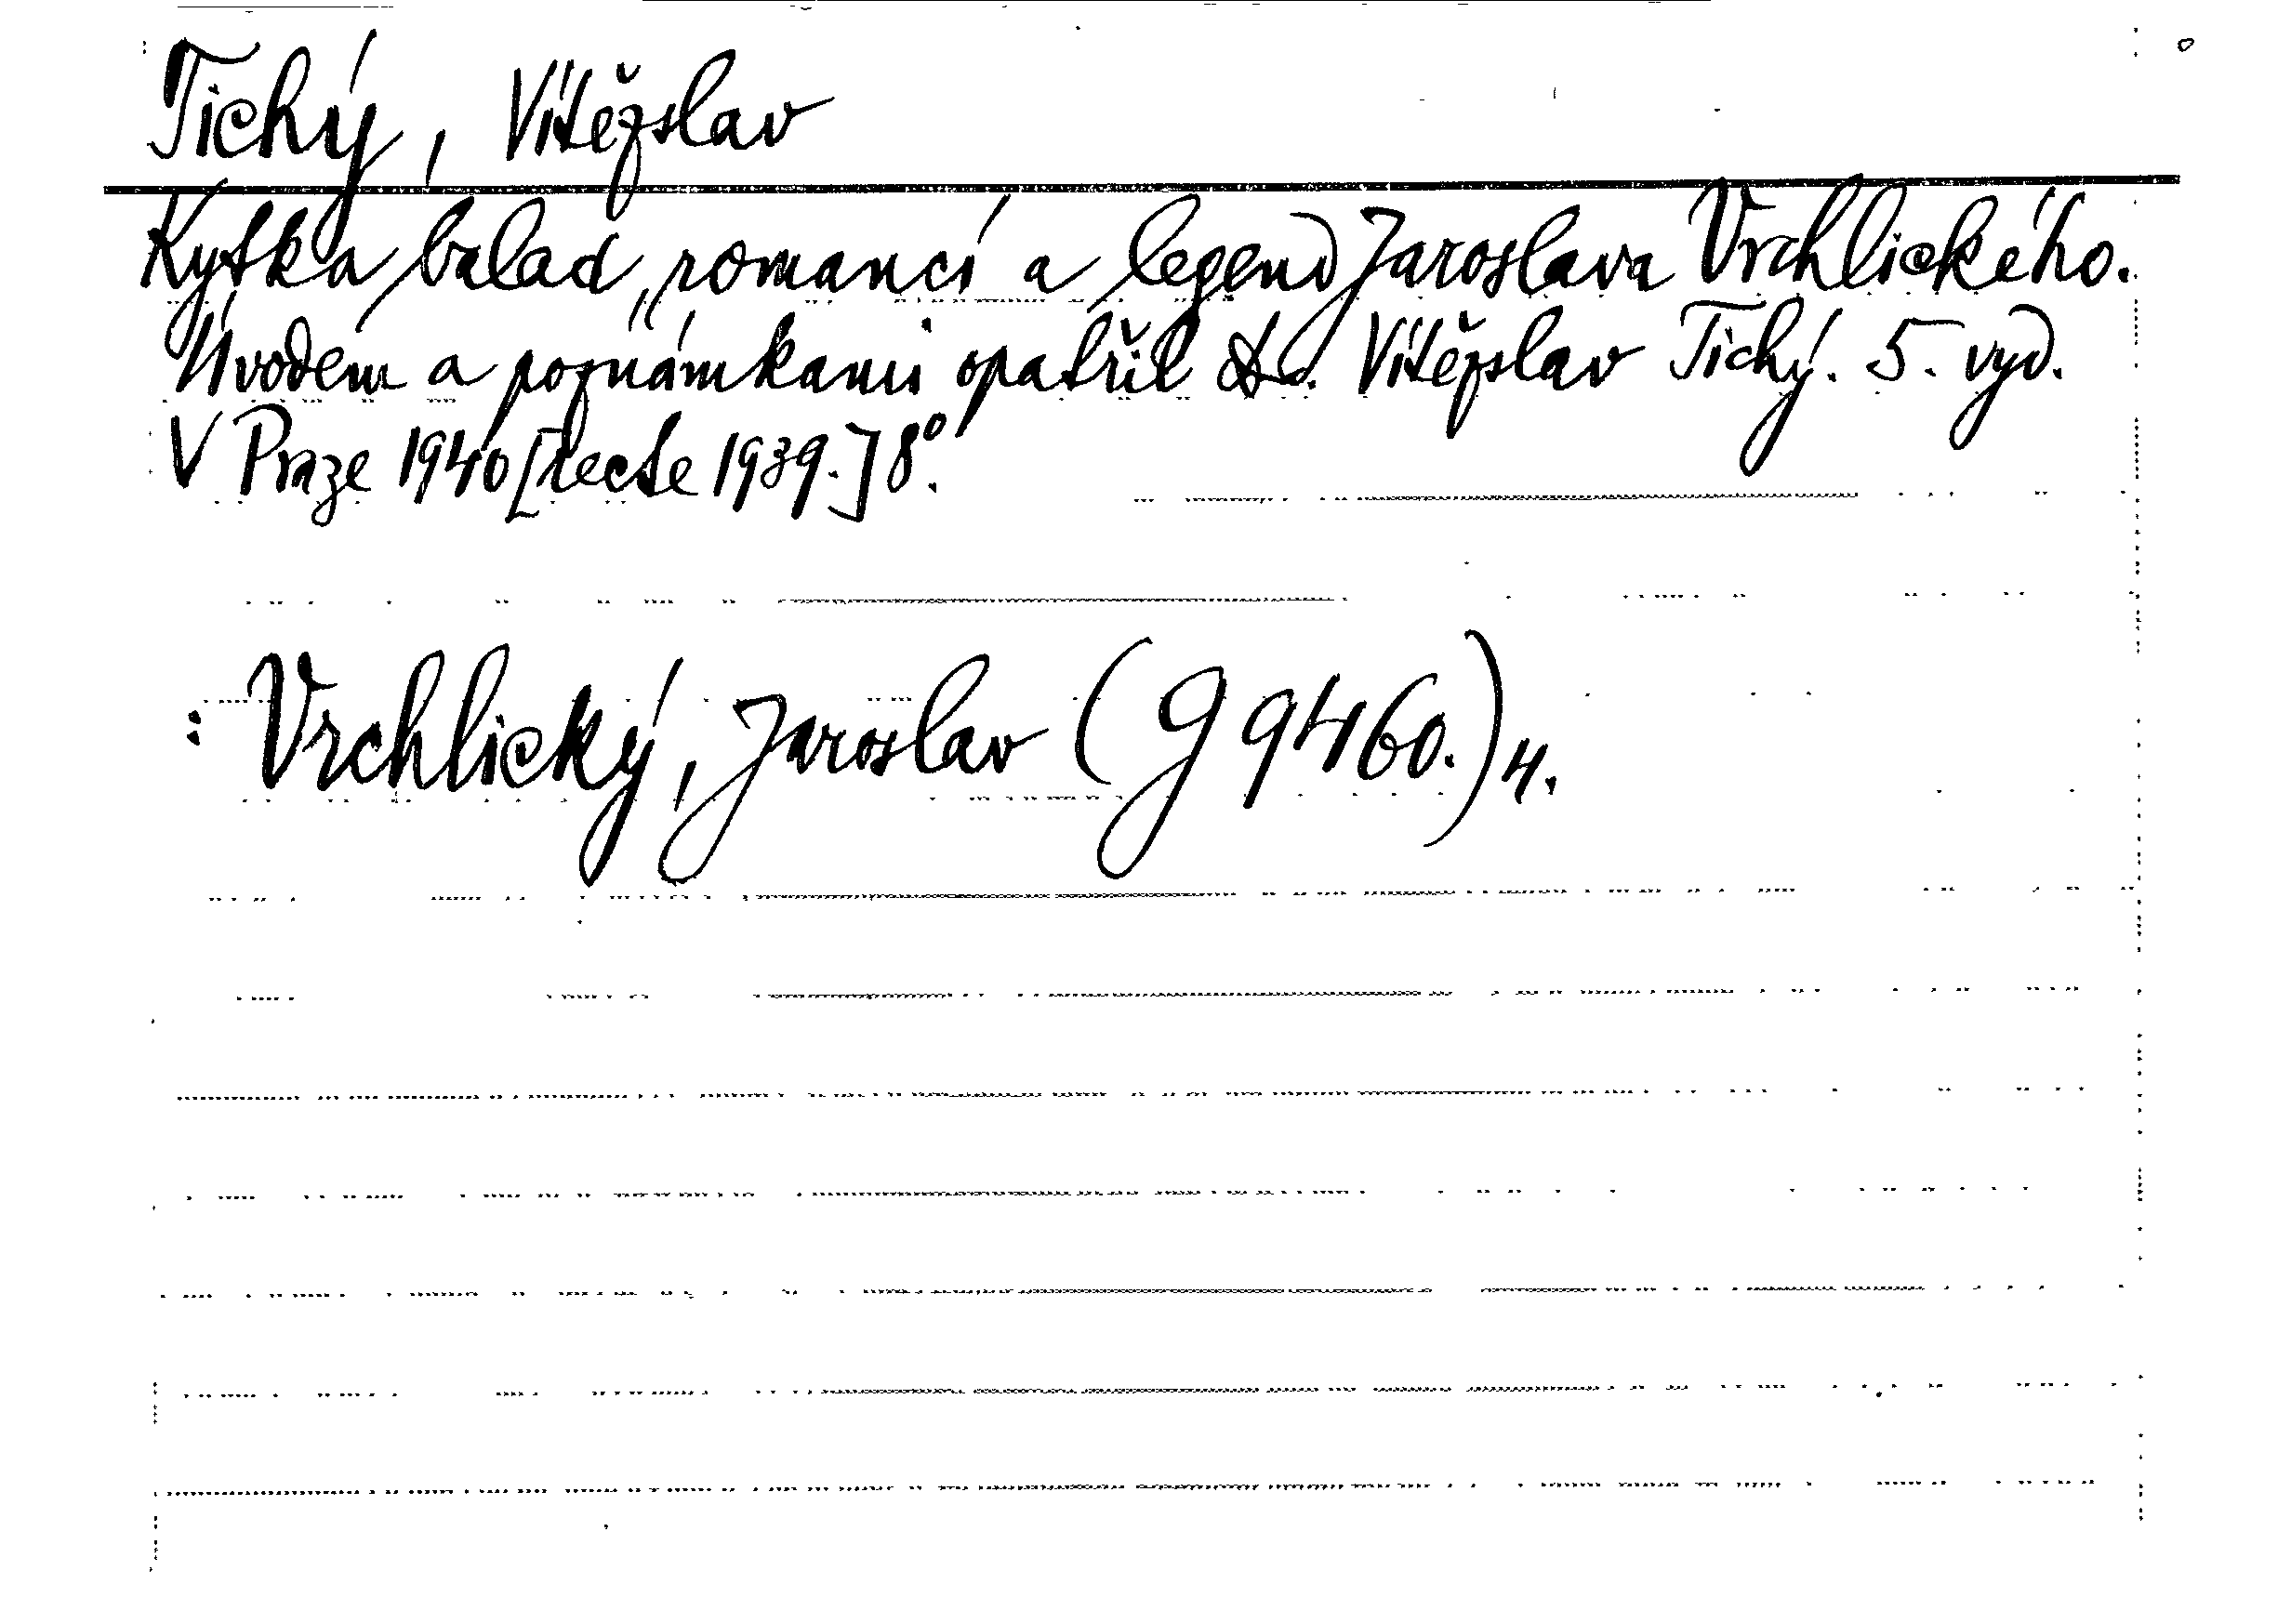 Tichý, Vítězslav
Kytka balad, romancí a legend Jaroslava Vrchlického.
Úvodem a poznámkami opatřil Dr. Vítězslav Tichý. 5. vyd.
V Praze 1940 [recte 1939.] 8°.
: Vrchlický, Jaroslav (g 9460.) 4.